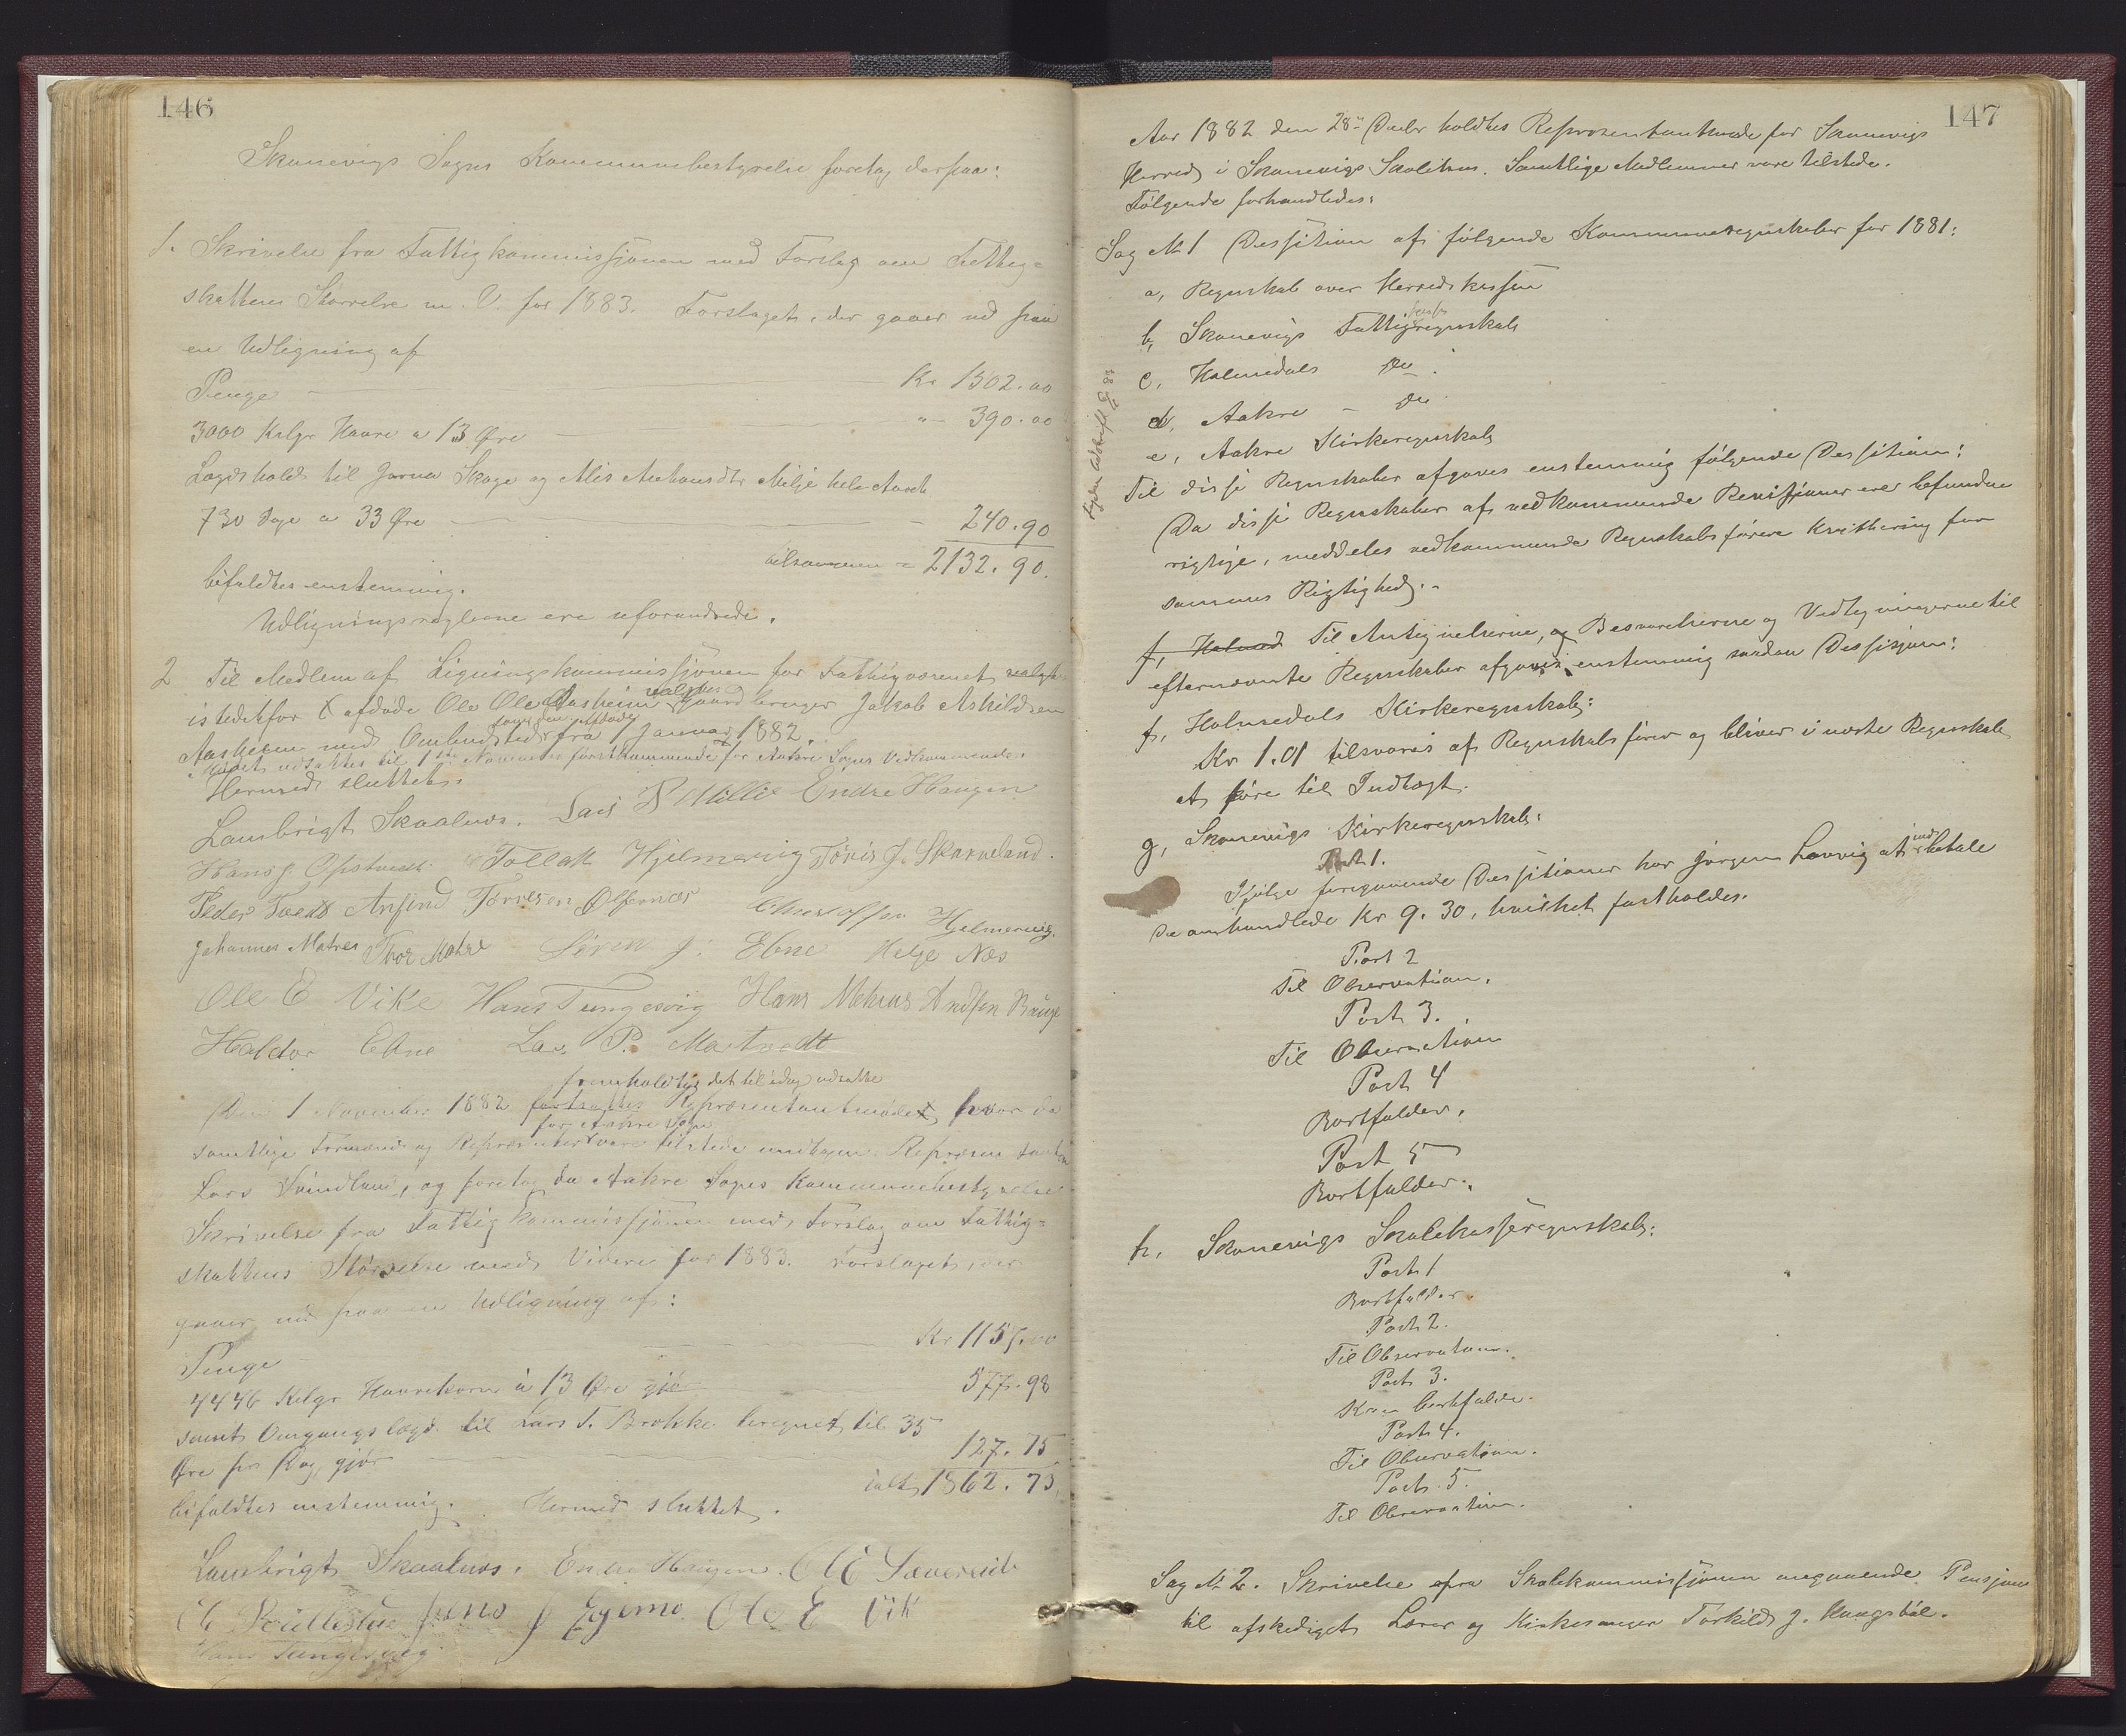 146
Skonevigs Sogns Kommunebestyrelse foretog derpaa:
1. Skrivelse fra Fattigkommissjonen med Forslag om Fattig=
skattens Størrelse m. V. for 1883. Forslaget, der gaaer ud paa
en Udligning af
Penge — Kr 1502.00
3000 Kilgr Havre a 13 Øre — "– 390.00
Lægdshold til og hele Aaret
730 Dage a 33 Øre — 240.90
tilsammen = 2132.90.
bifaldtes enstemmig.
Udligningsreglerne ere uforandrede.
2 Til Medlem af Ligningskommissjonen for Fattigvæsenet valgtes
istedetfor afdøde Ole Olsen Aasheim valgtes Gaardbruger Jakob Askildsen
Aasheim med Ombudstid som den Afdøde fra 1 Januar 1882.
Mødet udsattes til 1ste November førstkommende for Aakre Sogns Vedkommende.
Hermed sluttet.
Lambrigt Skaalnes. Lars B Millie Endre Haugen
Hans J. Opstveit Tollak Hjelmevig Tøris J. Skarveland.
Peder Tveit Anfind Tørresen Ølfernes Christoffer Hjelmevig.
Johannes Matre Thor Matre Søren J. Ebne Helge Nes
Ole E Vike Hans Tungesvig Hans Mehus Andfin Bauge
Haldor Ebne Lars P. Matvedt
Den 1 November 1882 fortsattes fremholdtes det til idag udsatte Repræsentantmøde, hvor da
samtlige Formænd og Repræsentanter for Aakre Sogn vare tilstede undtagen Repræsentant
Lars Svindland, og foretog da Aakre Sogns Kommunebestyrelse
Skrivelse fra Fattigkommissjonen med Forslag om Fattig=
skattens Størrelse med Videre for 1883. Forslaget, der
gaaer ud paa en Udligning af:
Penge — Kr 1157.00
4446 Kilgr Havrekorn à 13 Øre gjør — 577.98
samt Omgangslægd til Lars T. Brekke beregnet til 35
Øre pr Dag, gjør — 127.75
ialt 1862.73.
bifaldtes enstemmig. Hermed sluttet.
Lambrigt Skaalnes. Endre Haugen. Ole Sævereide
Jens J Egemo. Ole E Vik
Hans Tungesvig
147
Aar 1882 den 28de Decbr holdtes Repræsentantmøde for Skonevigs
Herred i Skonevigs Skolehus. Samtlige Medlemmer vare tilstede.
Følgende forhandledes:
Sag No 1 Dessition af følgende Kommuneregnskaber for 1881:
a, Regnskab over Herredskassen
b, Skonevigs Fattigregnskab
c, Holmedals Do
d, Aakre – Do
e, Aakre Kirkeregnskab
Til disse Regnskaber afgaves enstemmig følgende Dessition:
Da disse Regnskaber af vedkommende Revisjoner ere befundne
rigtige, meddeles vedkommende Regnskabsførere Kvittering for
sammes Rigtighed.–
f, Holmed Til Antegnelserne, og Besvarelserne og Vedtegningerne til
efternævnte Regnskaber afgaves enstemmig saadan Dessisjon:
f, Holmedals Kirkeregnskab:
Kr 1.01 tilsvares af Regnskabsfører og bliver i næste Regnskab
at føre til Indtægt.
g, Skonevigs Kirkeregnskab:
Post 1.
Ifølge foregaaende Dessitioner har Jørgen Larvig at indbetale
de omhandlede Kr 9.30, hvilket fastholdes.
Post 2
Til Observation.
Post 3.
Til Observation
Post 4
Bortfalder.
Post 5
Bortfalder.
h, Skonevigs Skolekasseregnskab:
Post 1
Bortfalder.
Post 2.
Til Observation.
Post 3.
Kan bortfalde.
Post 4.
Til Observation.
Post 5.
Til Observation.
Sag No 2. Skrivelse fra Skolekommissjonen angaaende Pensjon
til afskediget Lærer og Kirkesanger Torkild J. Haugsbøl.